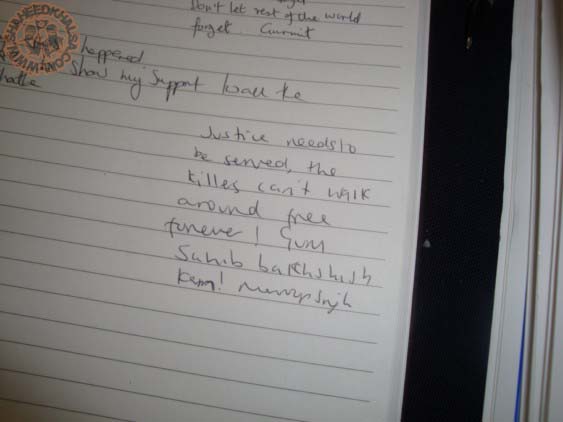 Don't let rest of the world
forget. Gurmit
happened
Show my support
Justice needs to
be served, the
killes can't walk
around free
forever! Guru
Sahib bakhshish
Karn!